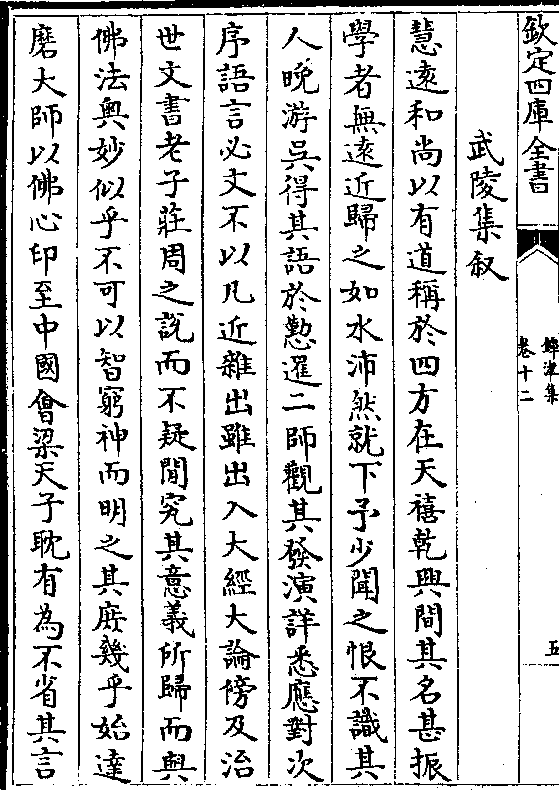 欽定四庫全書
鐔津集
卷十二
五
武陵集叙
慧遠和尚以有道稱於四方在天禧乾興間其名甚振
學者無遠近歸之如水沛然就下予少聞之恨不識其
人晚游吳得其語於懃暹二師觀其發演詳悉應對次
序語言必文不以凡近雜出雖出入大經大論傍及治
世文書老子莊周之說而不疑閒究其意義所歸而與
佛法奥妙似乎不可以智窮神而明之其庶幾乎始達
磨大師以佛心印至中國會梁天子耽有為不省其言